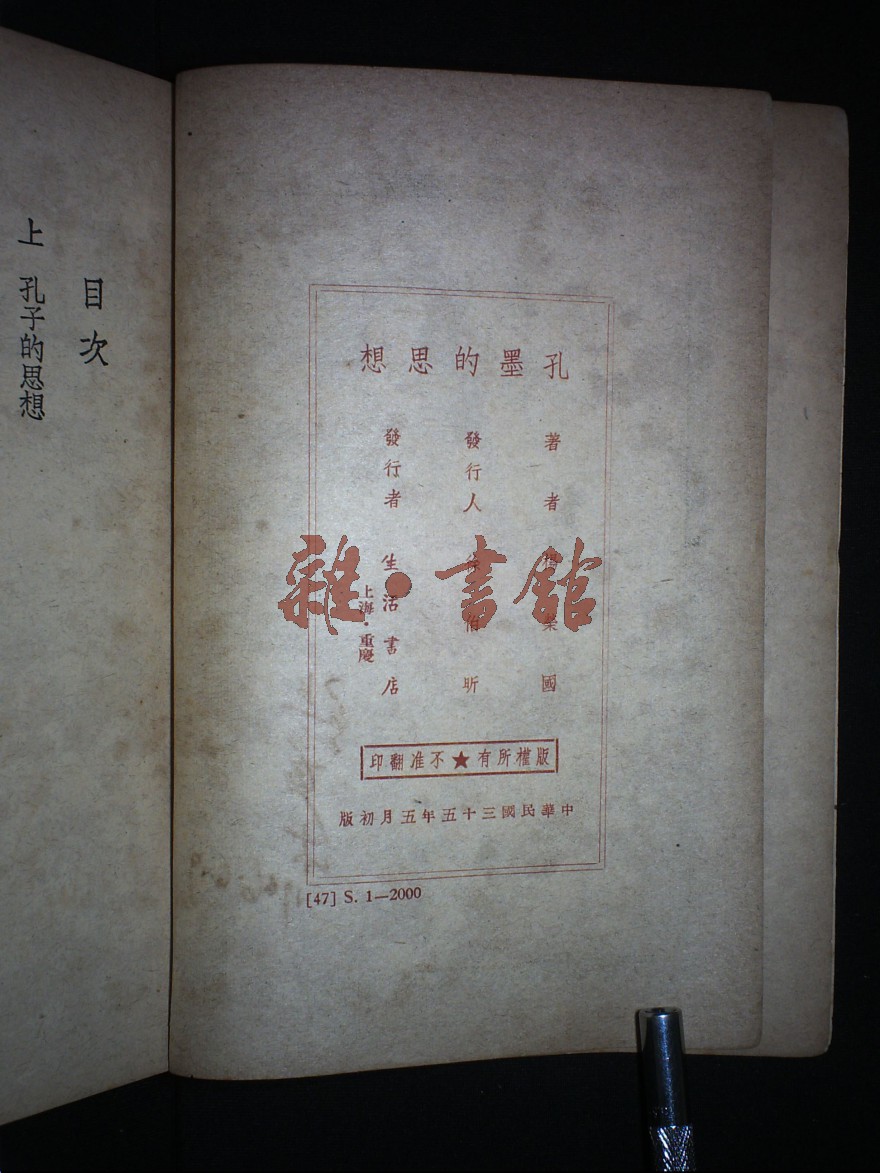 孔墨的思想
著者 楊榮國
發行人 徐伯昕
發行者 生活書店
上海・重慶
版權所有★不准翻印
中華民國三十五年五月初版
[47] S. 1—2000
雜·書館
目次
上 孔子的思想